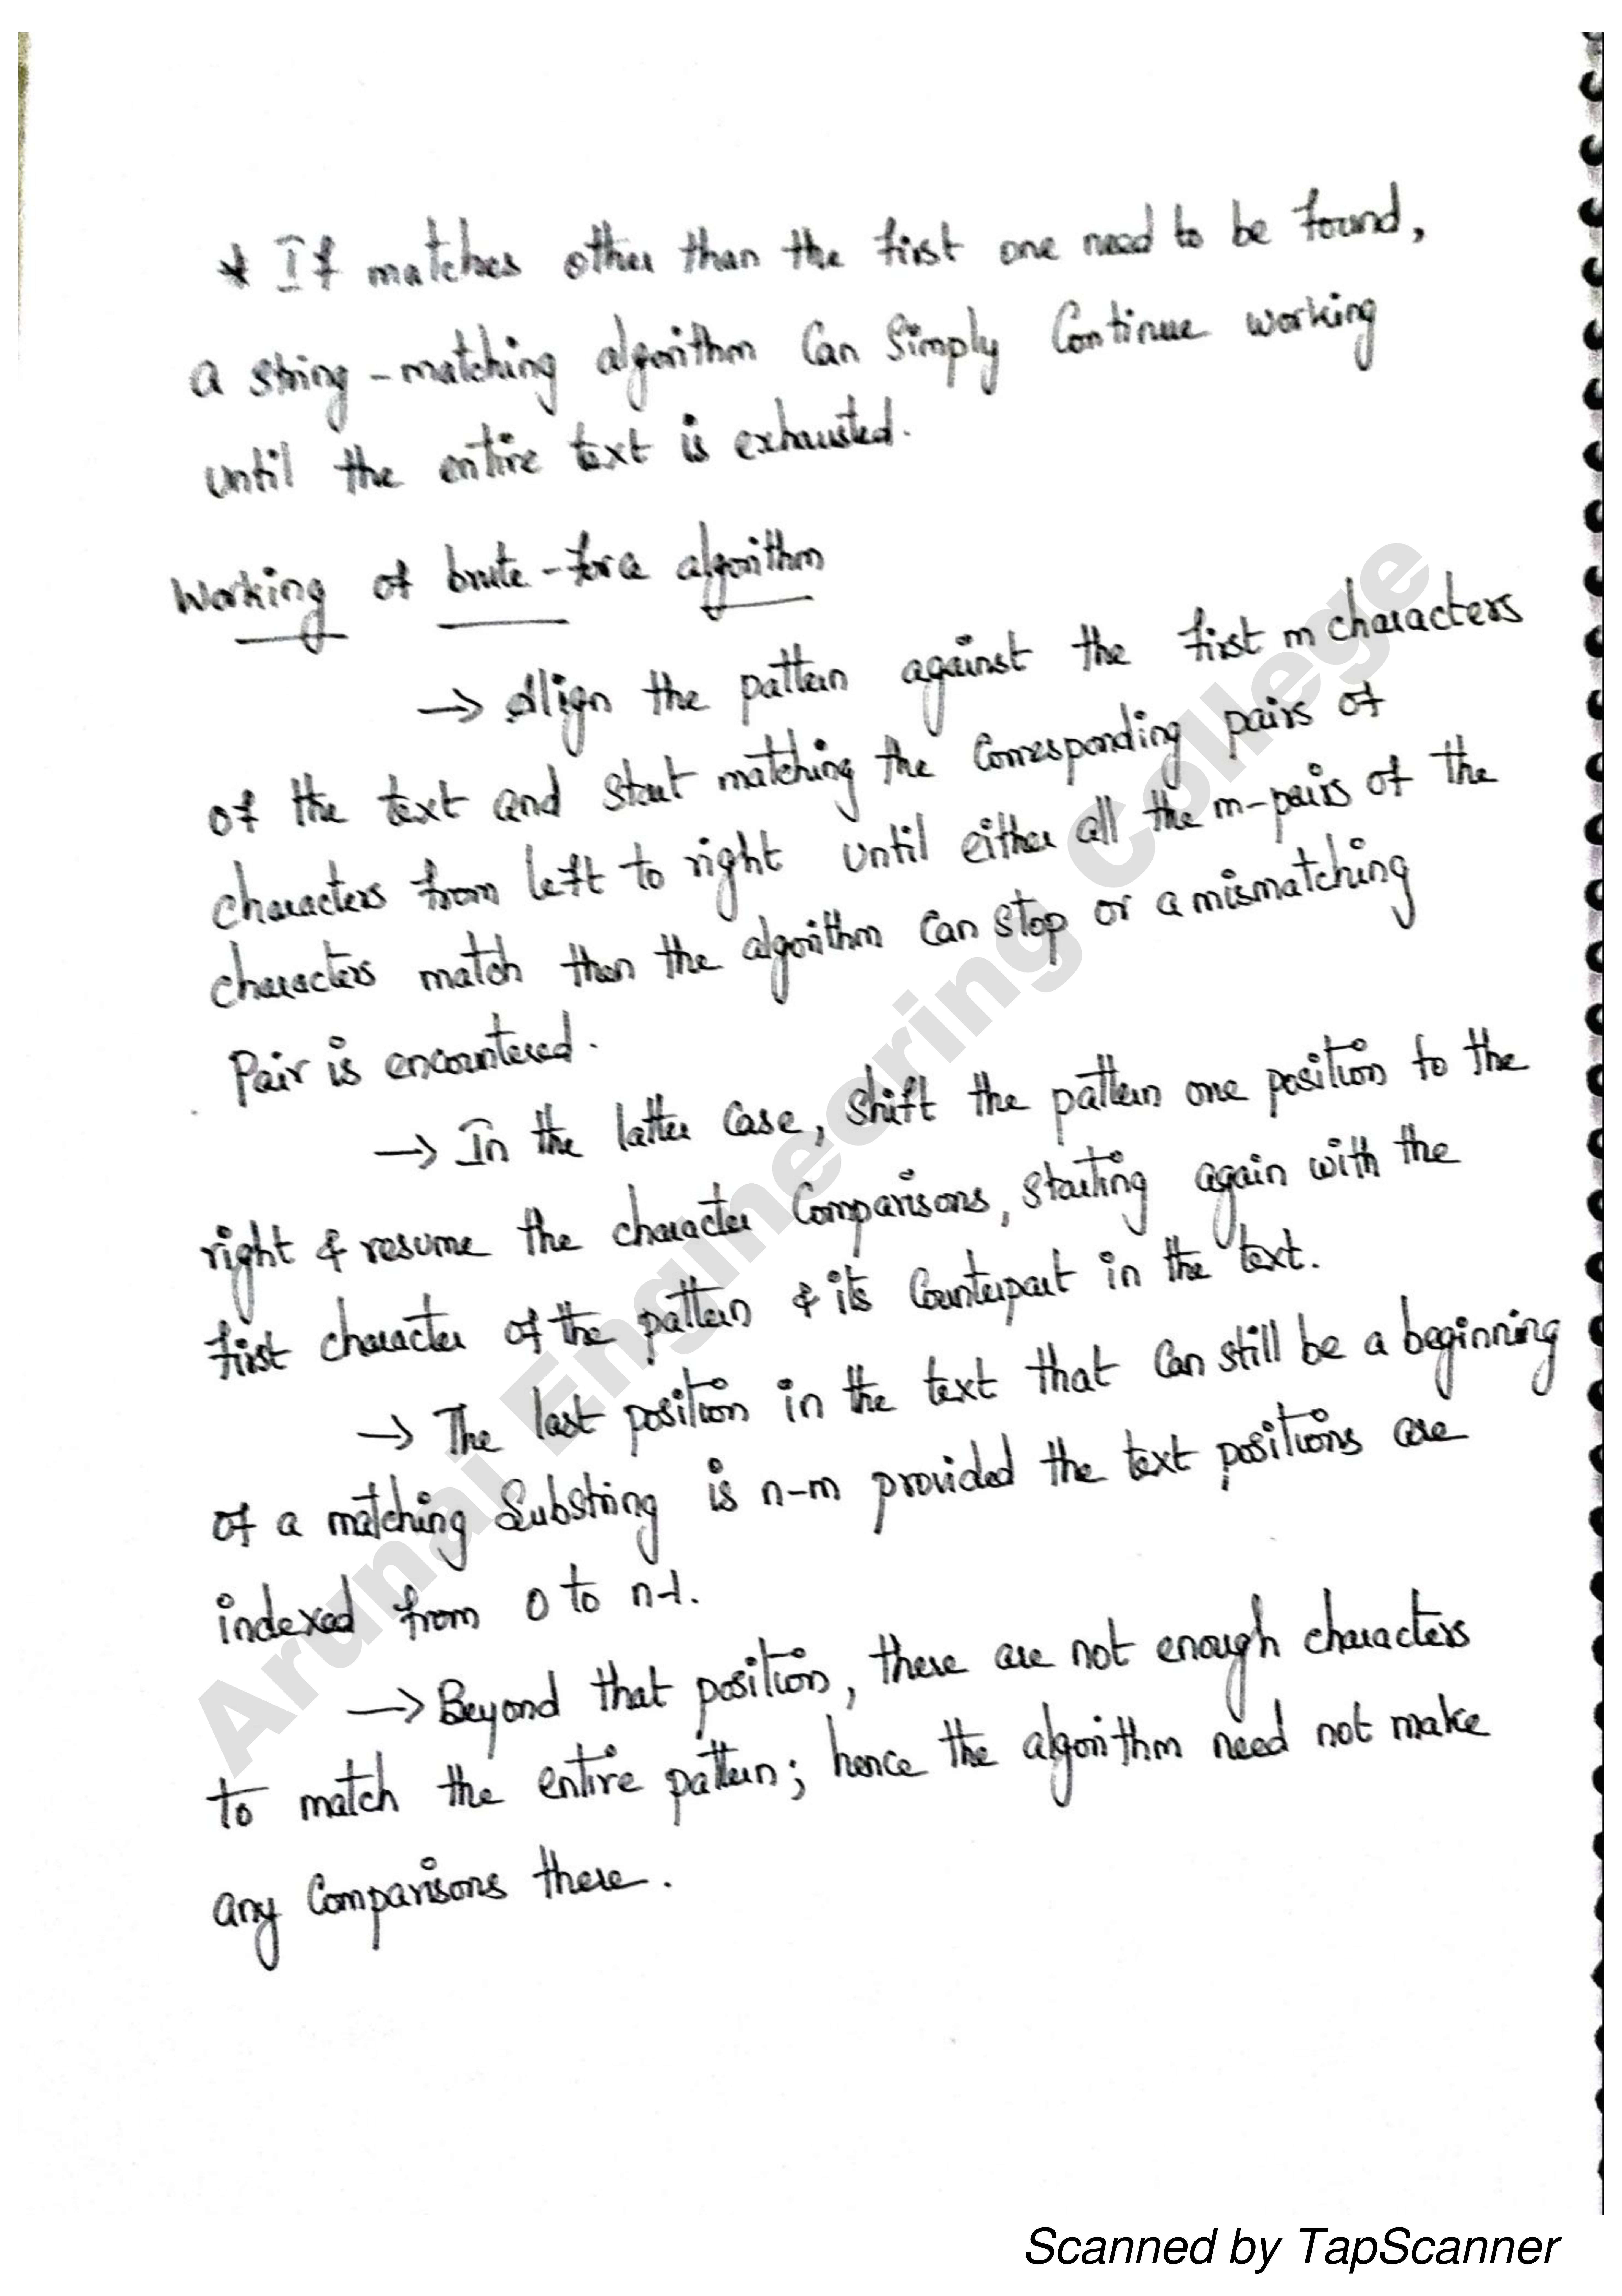 * If matches other than the first one need to be found,
a string-matching algorithm can simply continue working
until the entire text is exhausted.
Working of brute-force algorithm
→ Align the pattern against the first m characters
of the text and start matching the corresponding pairs of
characters from left to right until either all the m-pairs of the
characters match then the algorithm can stop or a mismatching
pair is encountered.
→ In the latter case, shift the pattern one position to the
right & resume the character comparisons, starting again with the
first character of the pattern & its counterpart in the text.
→ The last position in the text that can still be a beginning
of a matching substring is n-m provided the text positions are
indexed from 0 to n-1.
→ Beyond that position, there are not enough characters
to match the entire pattern; hence the algorithm need not make
any comparisons there.
Arunai Engineering College
Scanned by TapScanner